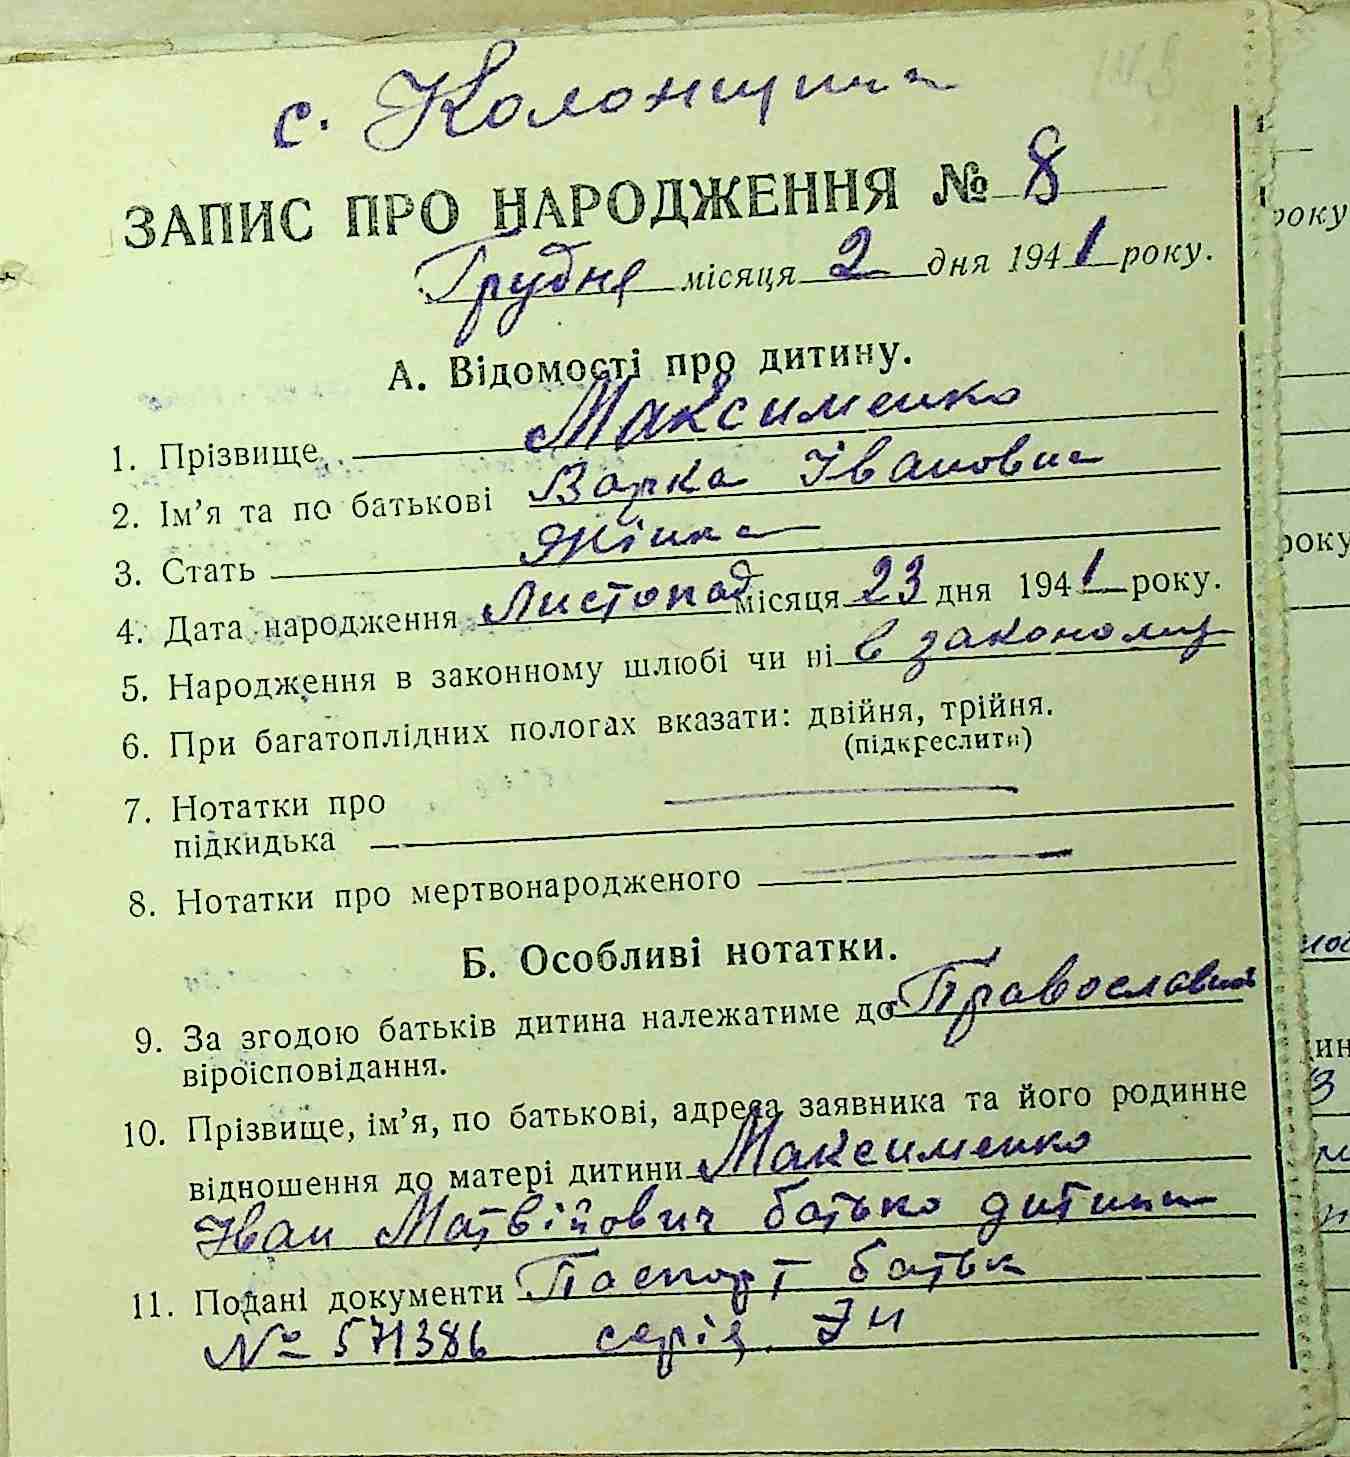 с. Колонщина
ЗАПИС ПРО НАРОДЖЕННЯ № 8
Грудня місяця 2 дня 1941 року.
А. Відомості про дитину.
1. Прізвище Максименко
2. Ім'я та по батькові Варка Івановна
3. Стать Жінка
4. Дата народження Листопад місяця 23 дня 1941 року.
5. Народження в законному шлюбі чи ні в законому
6. При багатоплідних пологах вказати: двійня, трійня.
(підкреслити)
7. Нотатки про
підкидька
8. Нотатки про мертвонародженого
Б. Особливі нотатки.
9. За згодою батьків дитина належатиме до Православної
віроісповідання.
10. Прізвище, ім'я, по батькові, адреса заявника та його родинне
відношення до матері дитини Максименко
Іван Матвійович батько дитини
11. Подані документи Паспорт батьк
№ 571386 серія